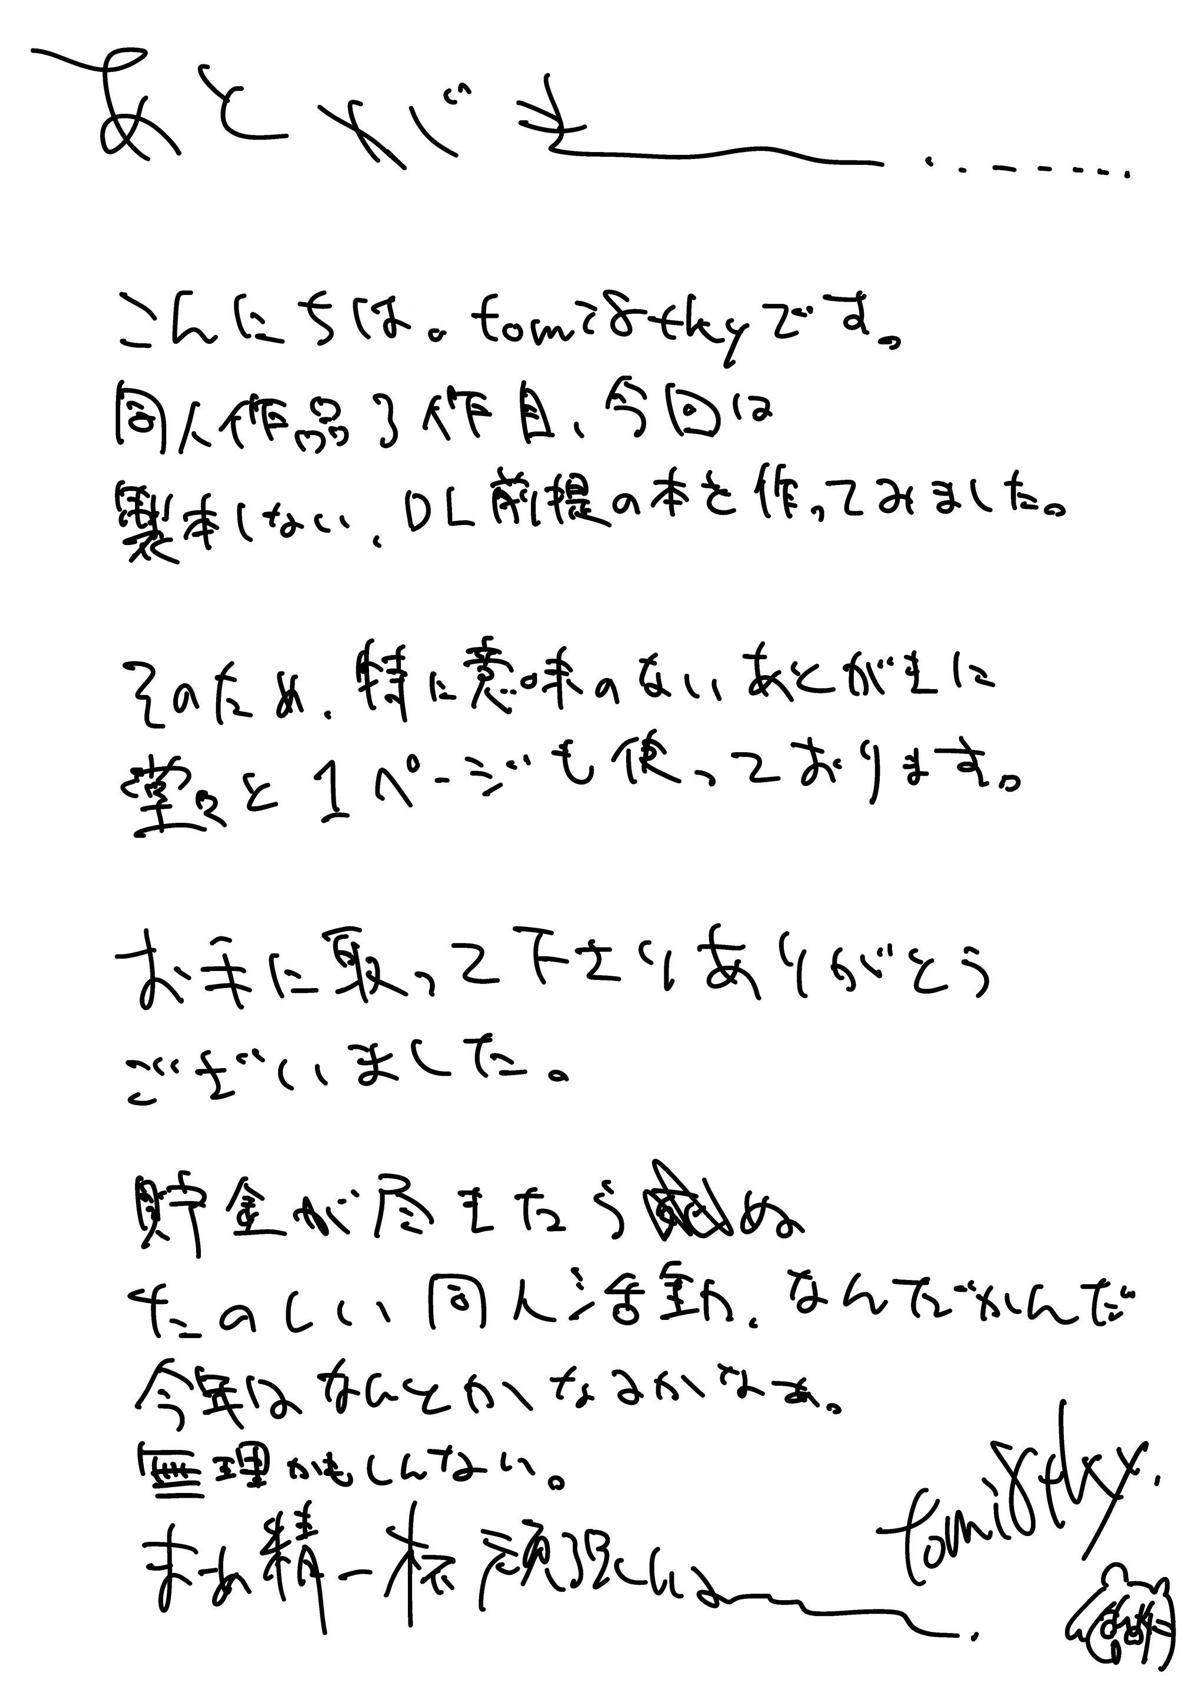 あとがき
こんにちは。tomi8tkyです。
同人作品3作目、今回は
製本しない、DL前提の本を作ってみました。
そのため、特に意味のないあとがきに
堂々と1ページも使っております。
お手に取って下さりありがとう
ございました。
貯金が尽きたら ぬ
たのしい同人活動、なんだかんだ
今年はなんとかなるかなぁ。
無理かもしんない。
まあ精一杯頑張んは
tomi8tky.